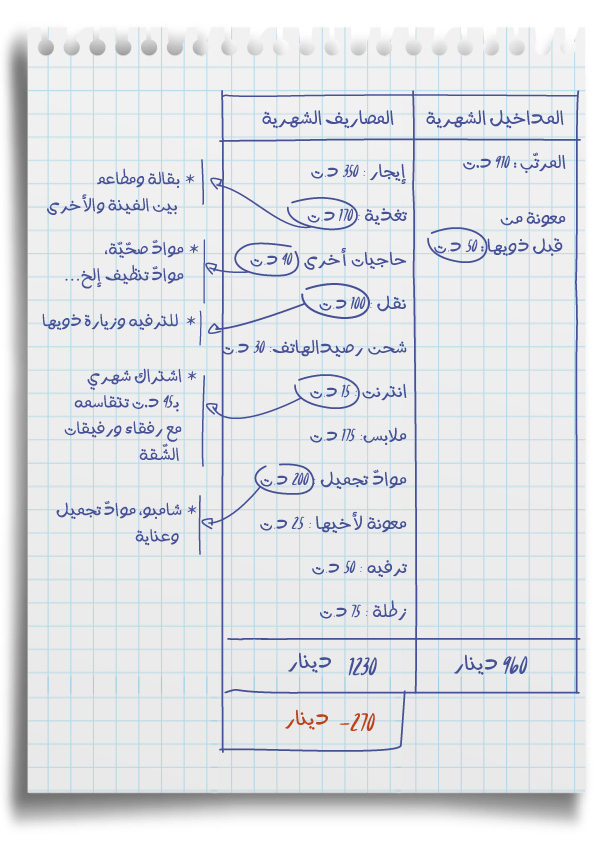 المداخيل الشهرية
المرتّب: 910 د.ت
معونة من
قبل ذويها: 50 د.ت
960 دينار
المصاريف الشهرية
إيجار : 350 د.ت
تغذية : 170 د.ت
حاجيات أخرى : 40 د.ت
نقل : 100 د.ت
شحن رصيدالهاتف: 30 د.ت
انترنت : 15 د.ت
ملابس: 175 د.ت
موادّ تجميل : 200 د.ت
معونة لأخيها : 25 د.ت
ترفيه : 50 د.ت
زطلة : 75 د.ت
1230 دينار
-270 دينار
* بقالة ومطاعم
بين الفينة والأخرى
* موادّ صحّيّة،
موادّ تنظيف إلخ...
* للترفيه وزيارة ذويها
* اشتراك شهري
بـ45 د.ت تتقاسمه
مع رفقاء ورفيقات
الشّقة
* شامبو، موادّ تجميل
وعناية